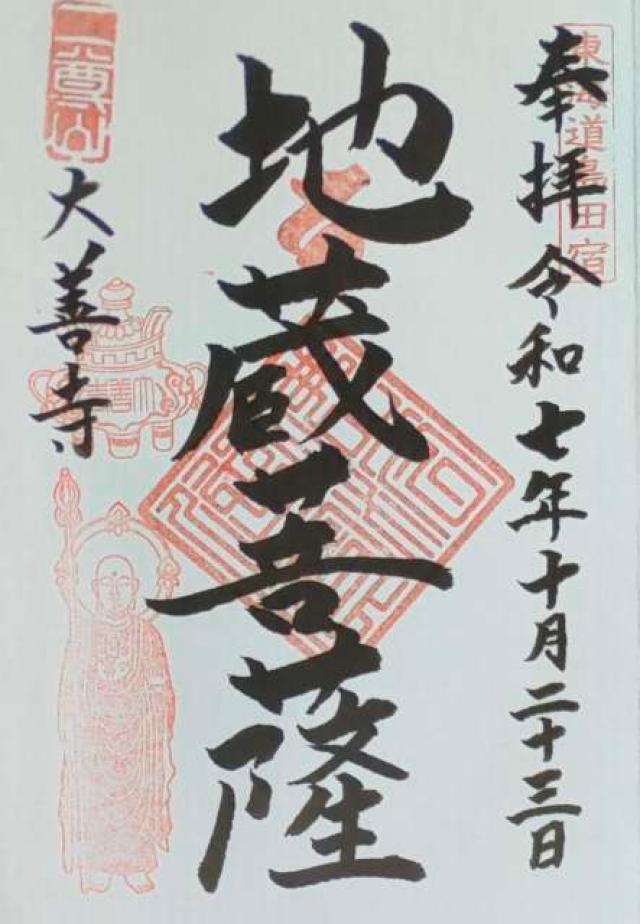 東海道島田宿
奉拝 令和七年十月二十三日
地蔵菩薩
二尊山
大善寺